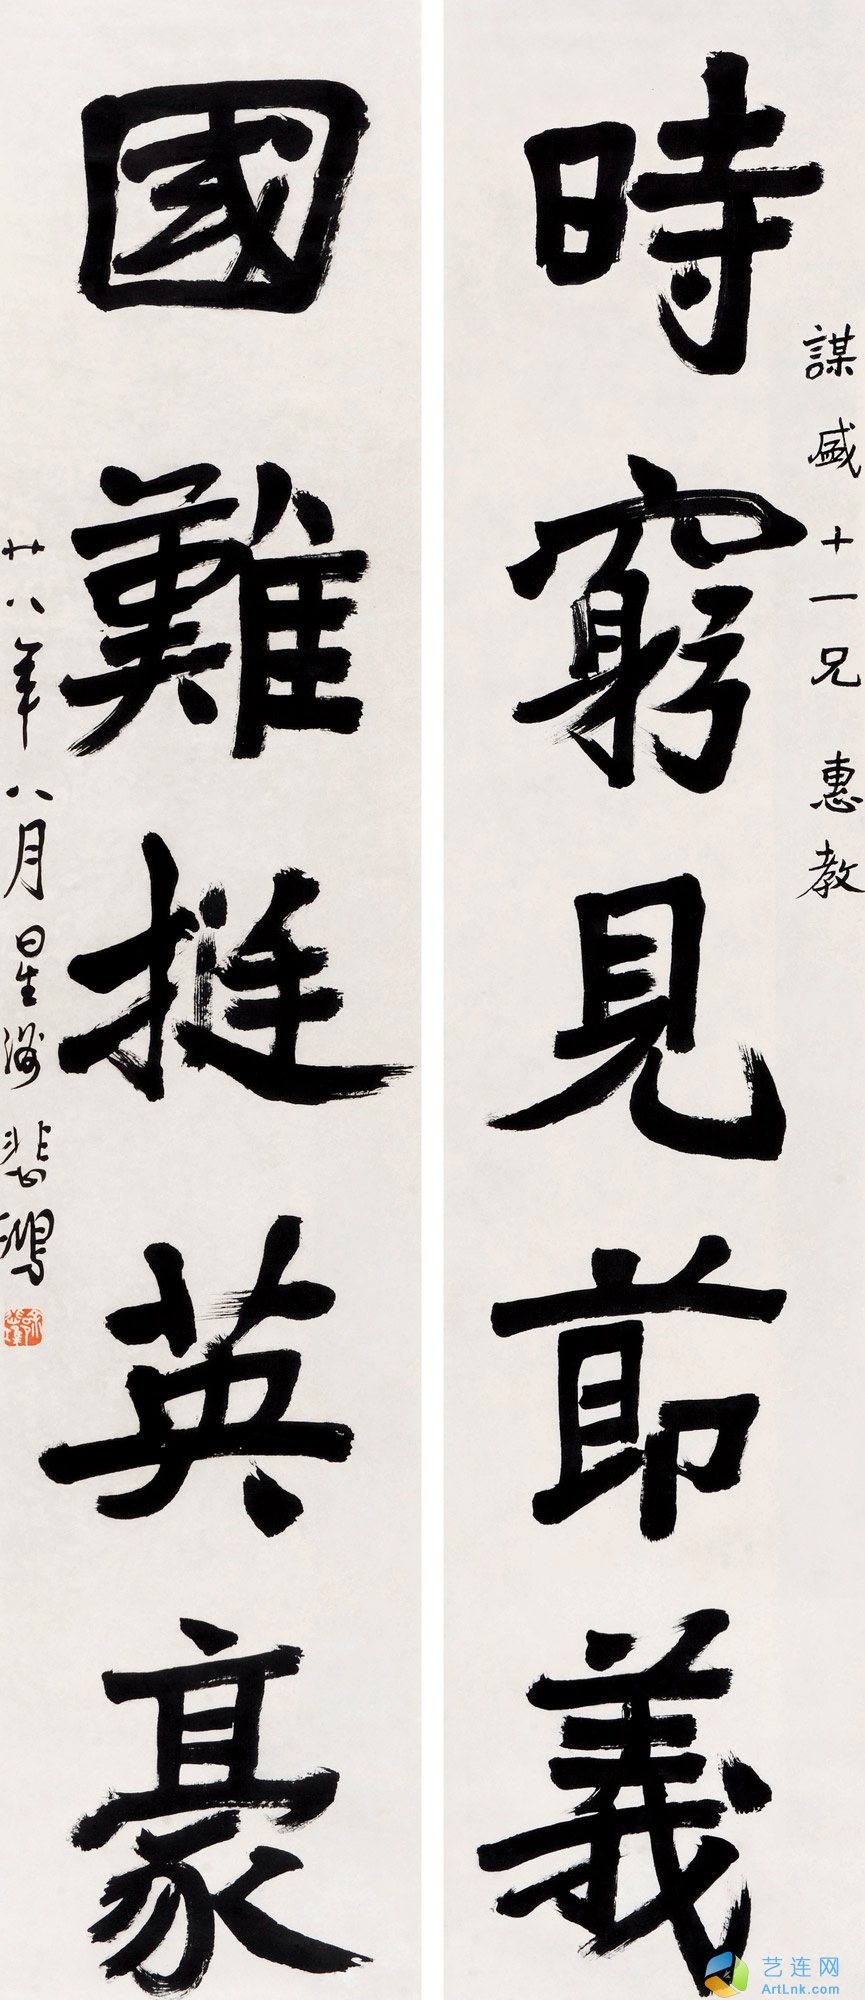 謀盛十一兄 惠教
時窮見節義
國難挺英豪
廿八年八月星洲悲鴻
艺连网
ArtLnk.com